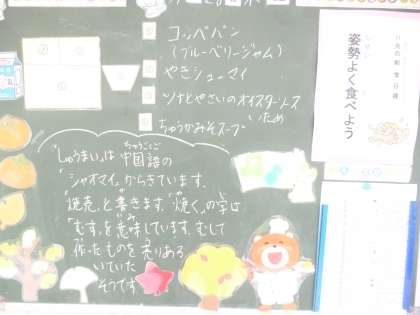 コッペパン
(ブルーベリージャム)
やきシューマイ
ツナとやさいのオイスターソース
いため
ちゅうかみそスープ
ちゅうごくご
「しゅうまい」は中国語の
「シャオマイ」からきています。
「焼売」と書きます。「焼く」の字は
「むす」を意味しています。むして
作ったものを売りある
いていた
そうです
姿勢よく食べよう